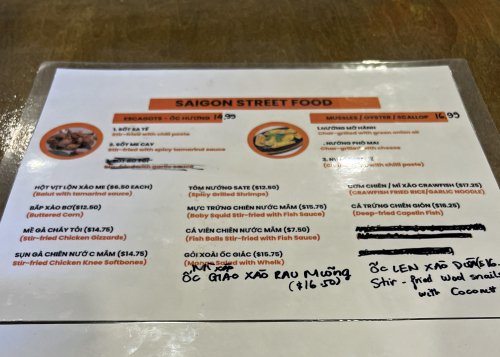 SAIGON STREET FOOD
ESCARGOTS - ỐC HƯƠNG 14.99
1. SỐT SA TẾ
Stir-fried with chili paste
2. SỐT ME CAY
Stir-fried with spicy tamarind sauce
MUSSLES / OYSTER / SCALLOP 16.99
1.NƯỚNG MỠ HÀNH
Char-grilled with green onion oil
NƯỚNG PHÔ MAI
Char-grilled with cheese
HỘT VỊT LỘN XÀO ME ($6.50 EACH)
(Balut with tamarind sauce)
BẮP XÀO BƠ($12.50)
(Buttered Corn)
MỀ GÀ CHÁY TỎI ($14.75)
(Stir-fried Chicken Gizzards)
SỤN GÀ CHIÊN NƯỚC MẮM ($14.75)
Stir-fried Chicken Knee Softbones)
TÔM NƯỚNG SATE ($12.50)
(Spicy Grilled Shrimps)
MỰC TRỨNG CHIÊN NƯỚC MẮM ($15.75)
(Baby Squid Stir-fried with Fish Sauce)
CÁ VIÊN CHIÊN NƯỚC MẮM ($7.50)
(Fish Balls Stir-fried with Fish Sauce)
GỎI XOÀI ỐC GIÁC ($15.75)
(Mango Salad with Whelk)
ỐC GIÁC XÀO RAU MUỐNG
($16.50)
CƠM CHIÊN / MÌ XÀO CRAWFISH ($17.25)
(CRAWFISH FRIED RICE/GARLIC NOODLE)
CÁ TRỨNG CHIÊN GIÒN ($18.25)
(Deep-fried Capelin Fish)
ỐC LEN XÀO DỪA
Stir-fried Wool snails
with Coconut